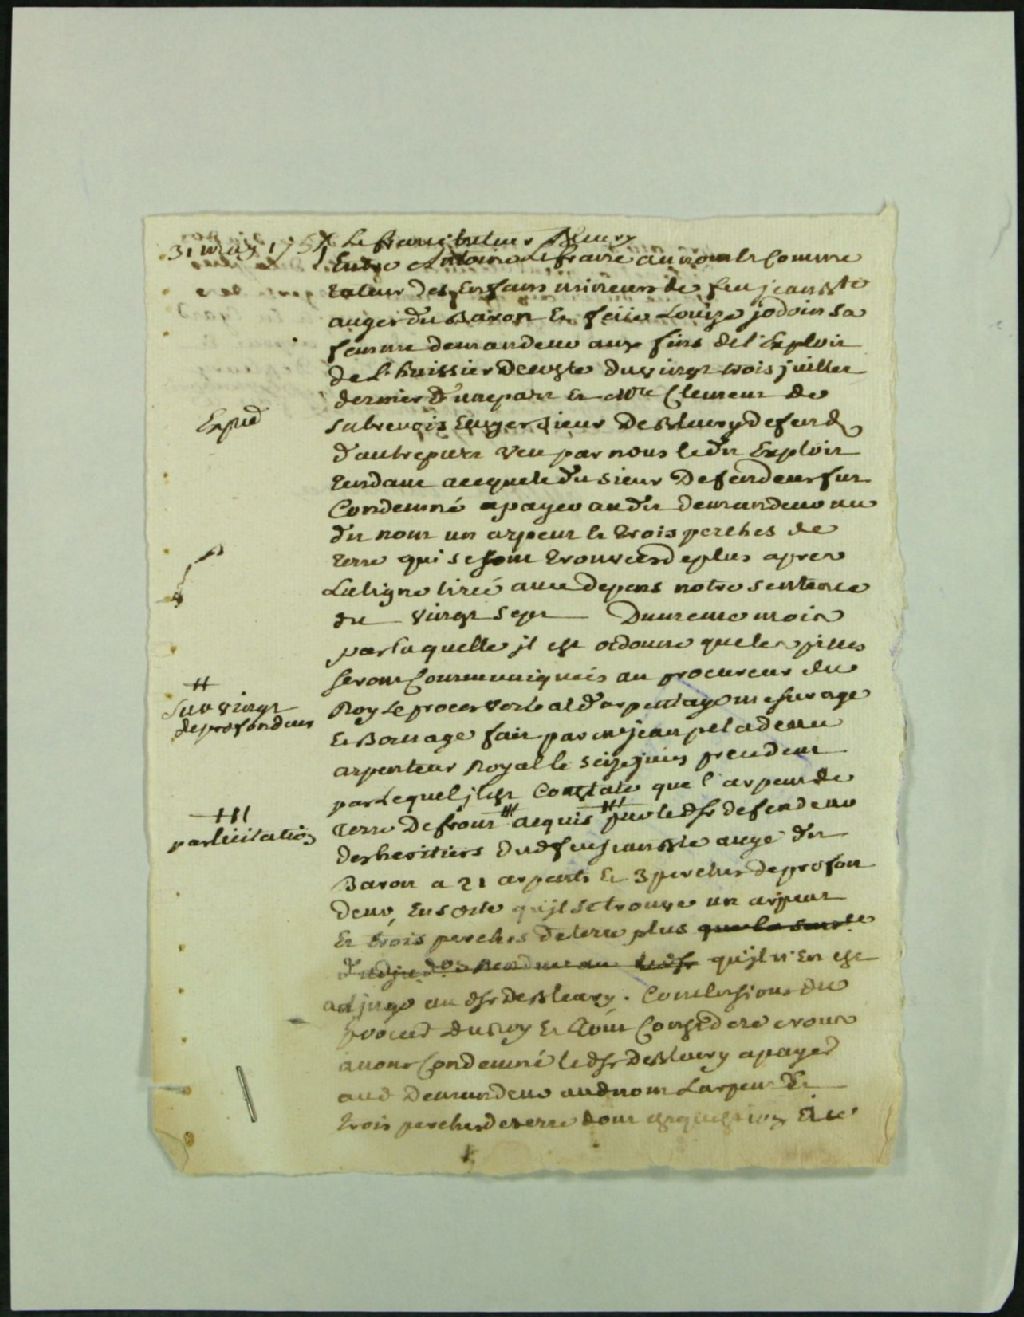 31 1757 Le franc tuteur Bleury
Entre Antoine Lefranc au nom et Comme
tuteur des Enfans mineurs de feu jean Bte
auger du Baron Et feüe Louize jodoin sa
femme demandeur aux fins de l'Exploit
de L'huissier Decoste du vingt trois juillet
dernier d'une part Et Mre Clement de
Expié
Sabrevois Ecuyer Sieur De Bleury defend
d'autre part Veu par nous ledit Exploit
tendant acequeledit Sieur Defendeur fut
Condemné apayer audit demandeur au
dit nom un arpent et trois perches de
terre qui se sont trouvées deplus apres
La ligne tirée avec depens notre Sentence
du vingt Sept Du mois
par laquelle il est ordonné que les pieces
Seront Communiqueés au procureur du
Roy Le proces verbal d'arpentage mesurage
Sur vingt
de profondeur
Et Bornage fait par jean peladeau
arpenteur Royal le Seize juin precedent
par Lequel il est Constaté que l'arpent de
terre de front acquis par ledit Sr defendeur
par licitation
des heritiers dud feu jean Bte augé du
Baron a 21 arpents Et 3 perches de profon
deur, En sorte qu'il se trouve un arpent
Et trois perches de terre plus
qu'il n'En est
adjugé au dSr de Bleury. Conclusions du
procud du Roy Et tout Consideré nous
avons Condemné le dSr de Bleury a payer
aud Demandeur aud nom L'arpent Et
trois perches de terre dont est question